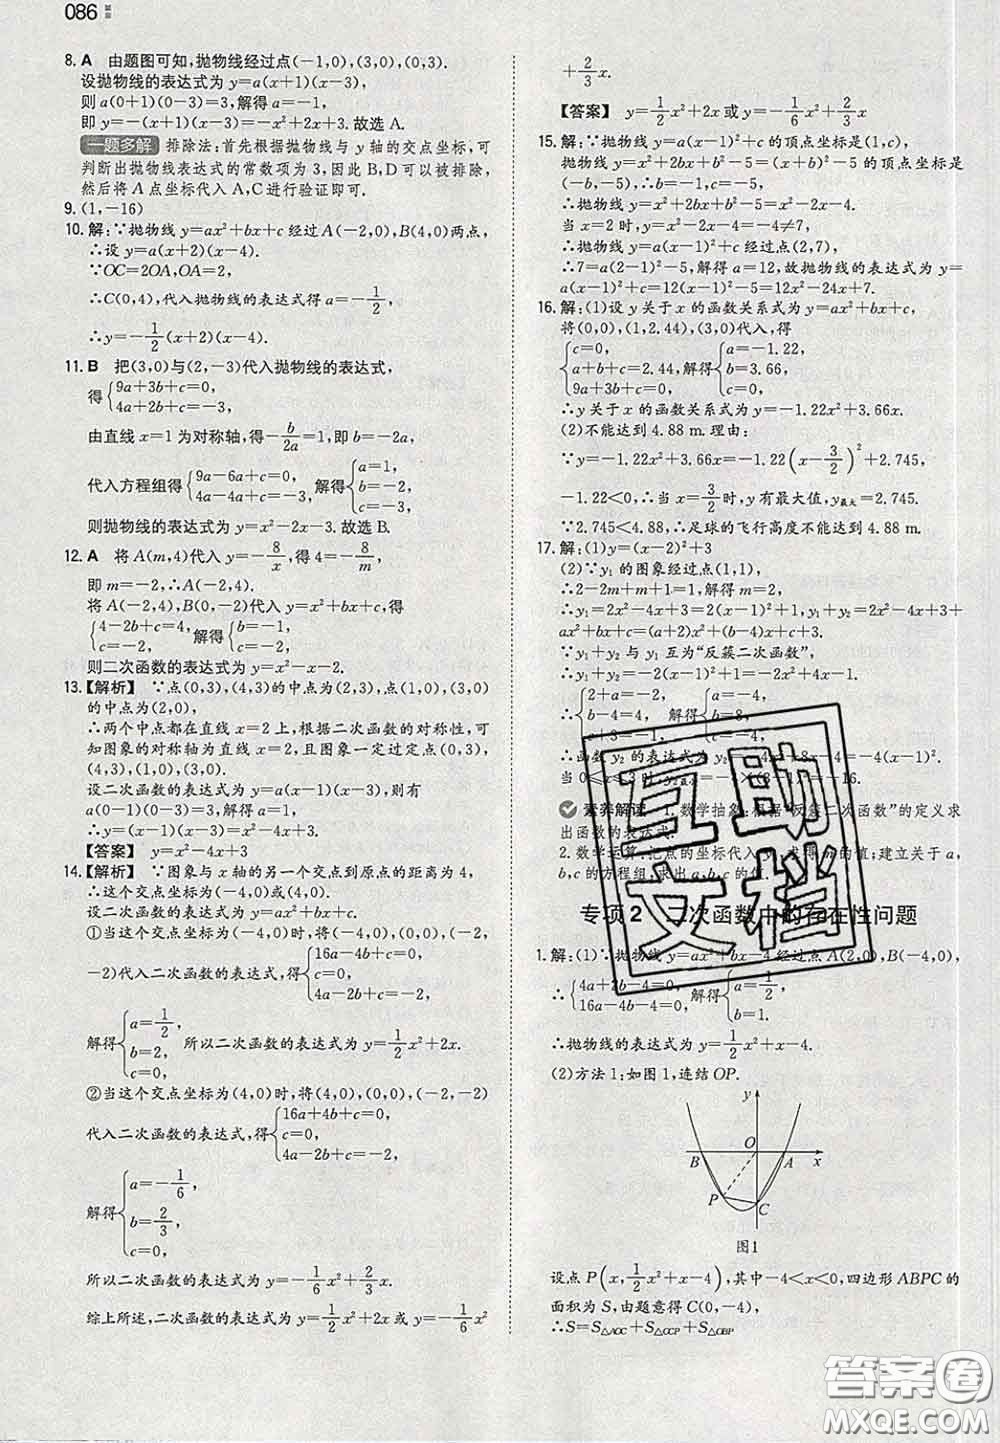 086
8. A 由题图可知,抛物线经过点(-1,0),(3,0),(0,3).
设抛物线的表达式为 y=a(x+1)(x-3),
则 a(0+1)(0-3)=3,解得 a=-1,
即 y=-(x+1)(x-3)=-x²+2x+3.故选 A.
一题多解 排除法:首先根据抛物线与 y 轴的交点坐标,可
判断出抛物线表达式的常数项为 3,因此 B,D 可以被排除,
然后将 A 点坐标代入 A,C 进行验证即可.
9. (1,-16)
10. 解:∵抛物线 y=ax²+bx+c 经过 A(-2,0),B(4,0)两点,
∴设 y=a(x+2)(x-4).
∵OC=2OA,OA=2,
∴C(0,4),代入抛物线的表达式得 a=-1/2,
∴y=-1/2(x+2)(x-4).
11. B 把(3,0)与(2,-3)代入抛物线的表达式,
得{9a+3b+c=0,
4a+2b+c=-3,
由直线 x=1 为对称轴,得-b/2a=1,即 b=-2a,
代入方程组得{9a-6a+c=0, 4a-4a+c=-3, 解得{a=1, b=-2, c=-3,
则抛物线的表达式为 y=x²-2x-3.故选 B.
12. A 将 A(m,4)代入 y=-8/x,得 4=-8/m,
即 m=-2,∴A(-2,4).
将 A(-2,4),B(0,-2)代入 y=x²+bx+c,得
{4-2b+c=4, c=-2, 解得{b=-1, c=-2,
则二次函数的表达式为 y=x²-x-2.
13.【解析】 ∵点(0,3),(4,3)的中点为(2,3),点(1,0),(3,0)
的中点为(2,0),
∴两个中点都在直线 x=2 上,根据二次函数的对称性,可
知图象的对称轴为直线 x=2,且图象一定过定点(0,3),
(4,3),(1,0),(3,0).
设二次函数的表达式为 y=a(x-1)(x-3),则有
a(0-1)(0-3)=3,解得 a=1,
∴y=(x-1)(x-3)=x²-4x+3.
【答案】 y=x²-4x+3
14.【解析】 ∵图象与 x 轴的另一个交点到原点的距离为 4,
∴这个交点坐标为(-4,0)或(4,0).
设二次函数的表达式为 y=ax²+bx+c,
①当这个交点坐标为(-4,0)时,将(-4,0),(0,0),(-2,
-2)代入二次函数的表达式,得{16a-4b+c=0, c=0, 4a-2b+c=-2,
解得{a=1/2, b=2, c=0, 所以二次函数的表达式为 y=1/2x²+2x.
②当这个交点坐标为(4,0)时,将(4,0),(0,0),(-2,-2)
代入二次函数的表达式,得{16a+4b+c=0, c=0, 4a-2b+c=-2,
解得{a=-1/6, b=2/3, c=0,
所以二次函数的表达式为 y=-1/6x²+2/3x.
综上所述,二次函数的表达式为 y=1/2x²+2x 或 y=-1/6x²
+2/3x.
【答案】 y=1/2x²+2x 或 y=-1/6x²+2/3x
15. 解:∵抛物线 y=a(x-1)²+c 的顶点坐标为(1,c),
抛物线 y=x²+2bx+b²-5=(x+b)²-5 的顶点坐标为
(-b,-5),∴b=-1,c=-5.
∴抛物线 y=x²+2bx+b²-5=x²-2x-4.
当 x=2 时,y=x²-2x-4=-4≠7,
∴抛物线 y=a(x-1)²+c 经过点(2,7),
∴7=a(2-1)²-5,解得 a=12,故抛物线的表达式为 y=
a(x-1)²+c=12(x-1)²-5=12x²-24x+7.
16. 解:(1)设 y 关于 x 的函数关系式为 y=ax²+bx+c,
将(0,0),(1,2.44),(3,0)代入,得
{c=0, a+b+c=2.44, 9a+3b+c=0, 解得{a=-1.22, b=3.66, c=0.
∴y 关于 x 的函数关系式为 y=-1.22x²+3.66x.
(2)不能达到 4.88 m.理由:
∵y=-1.22x²+3.66x=-1.22(x-3/2)²+2.745,
-1.22<0,∴当 x=3/2时,y 有最大值,y最大=2.745.
∵2.745<4.88,∴足球的飞行高度不能达到 4.88 m.
17. 解:(1)y=(x-2)²+3
(2)∵y₁ 的图象经过点(1,1),
∴2-2m+m+1=1,解得 m=2,
∴y₁=2x²-4x+3=2(x-1)²+1,y₁+y₂=2x²-4x+3+
ax²+bx+c=(a+2)x²+(b-4)x+c+3.
∵y₁+y₂ 与 y₁ 互为“反簇二次函数”,
∴y₁+y₂=-2(x-1)²+1=-2x²+4x-1,
∴{2+a=-2, b-4=4, c+3=-1, 解得{a=-4, b=8,
∴函数 y₂ 的表达式为 y₂=-4x²+8x-4=-4(x-1)².
素养解读 1.数学抽象:根据“反簇二次函数”的定义求
出函数的表达式.
2.数学运算:把点的坐标代入 y₁ 求得 m 的值;建立关于 a,
b,c 的方程组,求出 a,b,c 的值.
专项 2 二次函数中的存在性问题
1. 解:(1)∵抛物线 y=ax²+bx-4 经过点 A(2,0),B(-4,0),
∴{4a+2b-4=0, 16a-4b-4=0, 解得{a=1/2, b=1.
∴抛物线的表达式为 y=1/2x²+x-4.
(2)方法 1:如图 1,连结 OP.
y
B O A x
P C
图1
设点 P(x,1/2x²+x-4),其中-4<x<0,四边形 ABPC 的
面积为 S,由题意得 C(0,-4),
∴S=S△AOC+S△OCP+S△OBP
互助
文档
答案圈
MXQE.COM